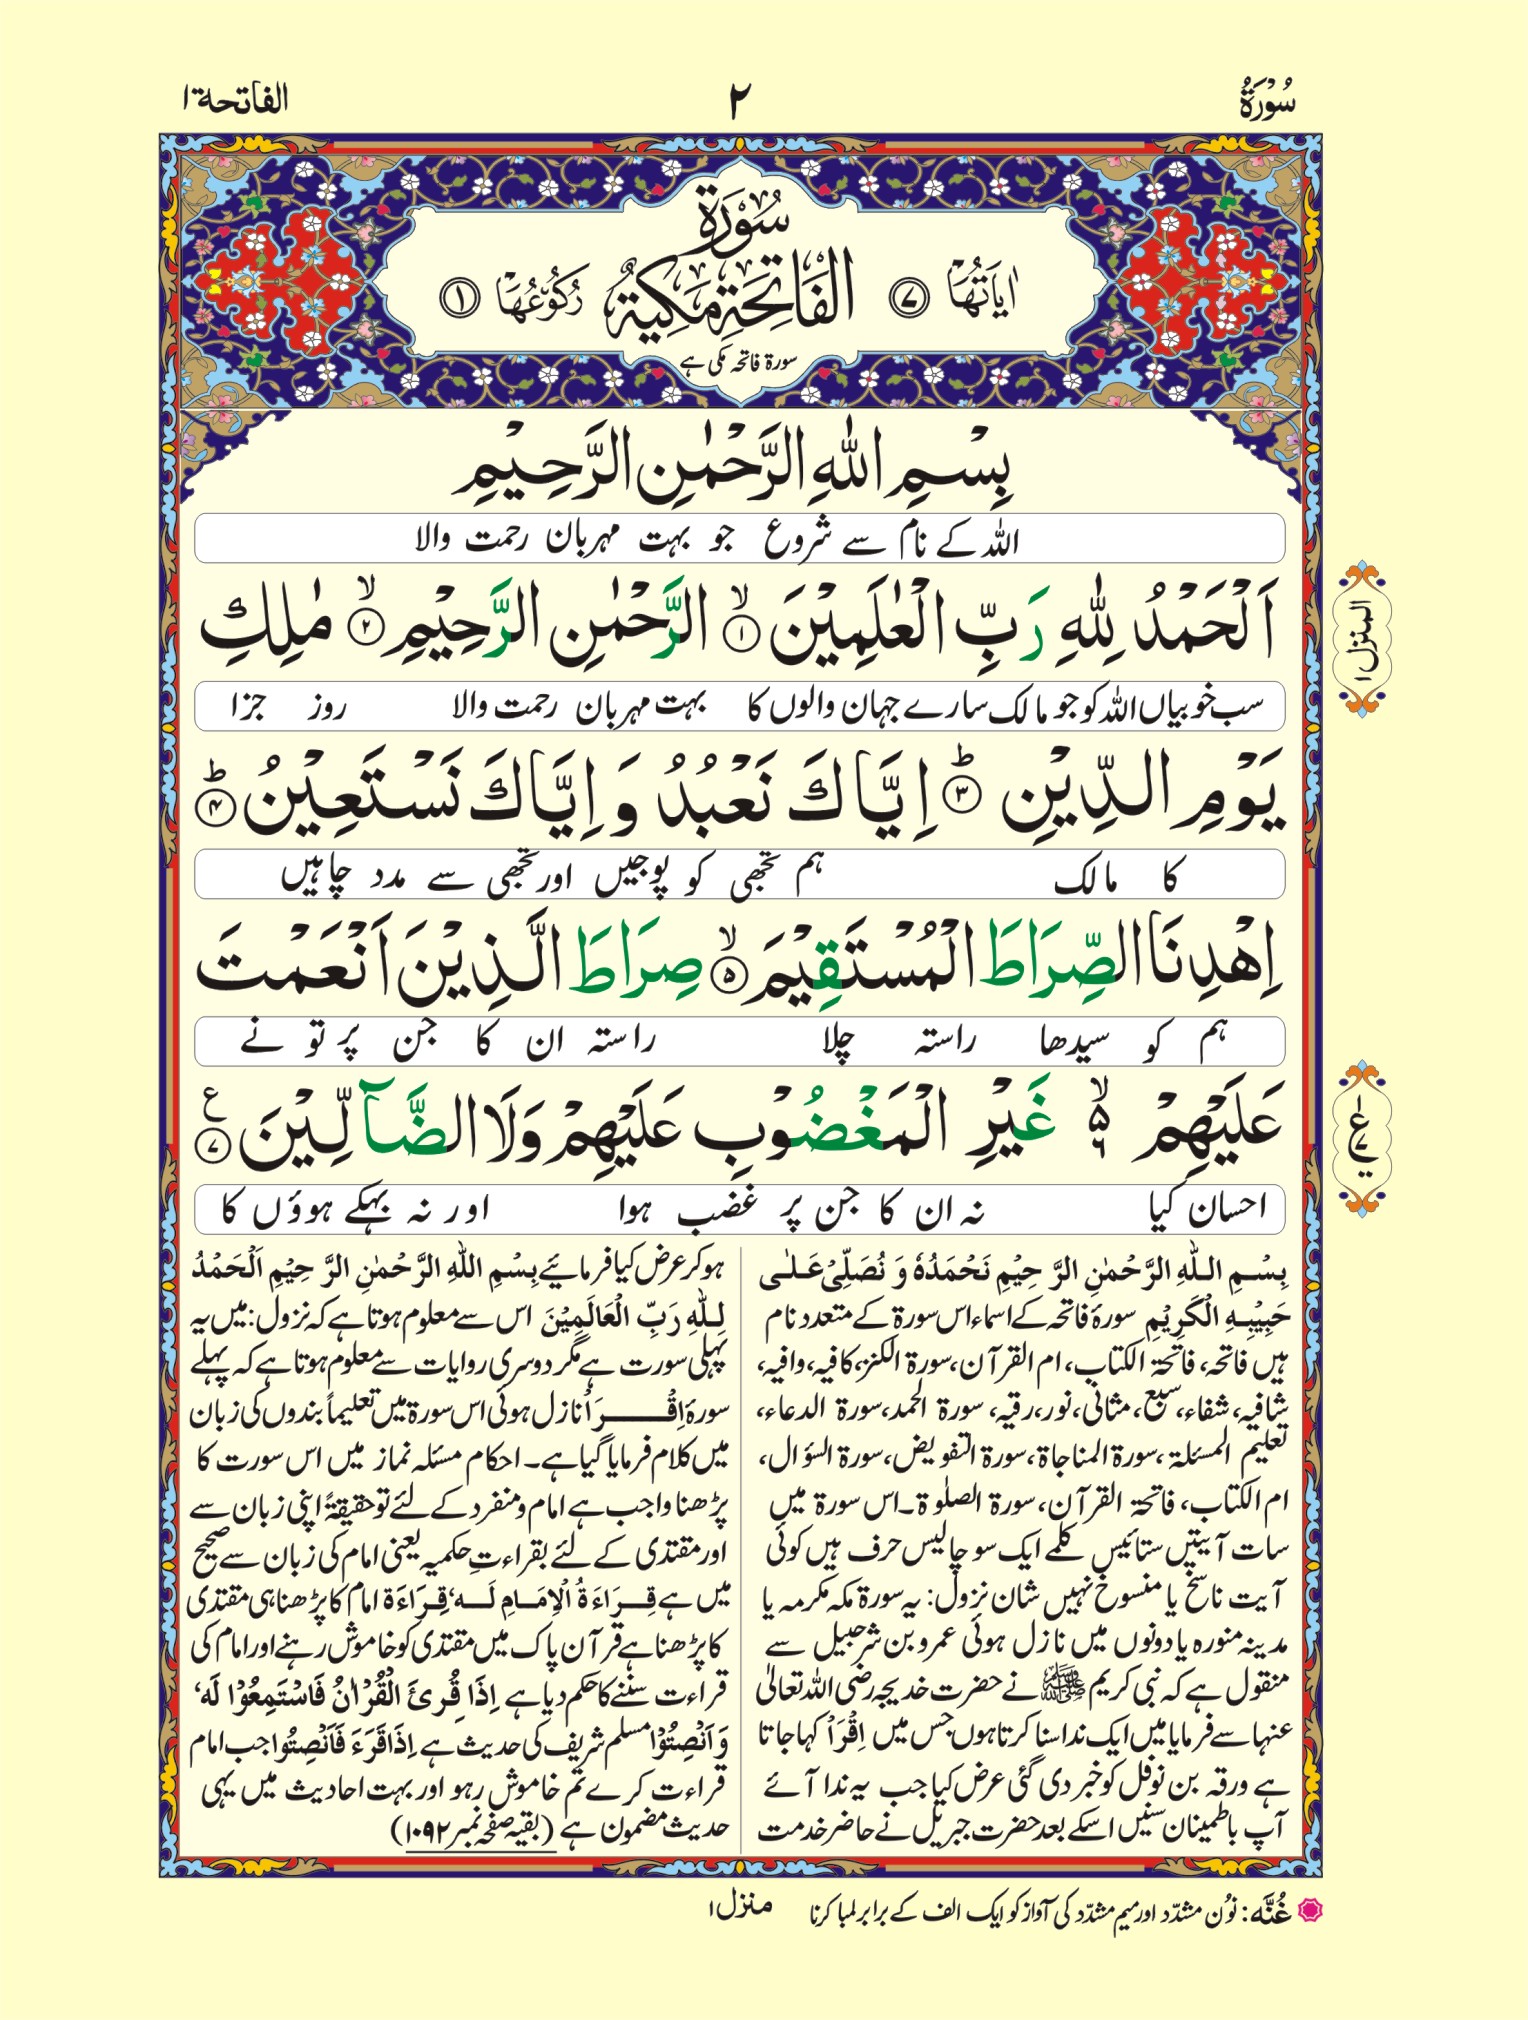 سُوْرَۃُ
۲
الفاتحة ۱
سُوْرَةُ
اٰیَاتُهَا ۷
الْفَاتِحَةِ مَكِّيَّةٌ
رُكُوْعُهَا ۱
سورۃ فاتحہ مکی ہے
بِسْمِ اللّٰهِ الرَّحْمٰنِ الرَّحِیْمِ
اللہ کے نام سے شروع جو بہت مہربان رحمت والا
اَلْحَمْدُ لِلّٰهِ رَبِّ الْعٰلَمِیْنَ ۙ﴿۱﴾ الرَّحْمٰنِ الرَّحِیْمِ ۙ﴿۲﴾ مٰلِكِ
سب خوبیاں اللہ کو جو مالک سارے جہان والوں کا بہت مہربان رحمت والا روز جزا
یَوْمِ الدِّیْنِ ؕ﴿۳﴾ اِیَّاكَ نَعْبُدُ وَ اِیَّاكَ نَسْتَعِیْنُ ؕ﴿۴﴾
کا مالک ہم تجھی کو پوجیں اور تجھی سے مدد چاہیں
اِهْدِنَا الصِّرَاطَ الْمُسْتَقِیْمَ ۙ﴿۵﴾ صِرَاطَ الَّذِیْنَ اَنْعَمْتَ
ہم کو سیدھا راستہ چلا راستہ ان کا جن پر تو نے
عَلَیْهِمْ ۙ۵ ۶ غَیْرِ الْمَغْضُوْبِ عَلَیْهِمْ وَلَا الضَّآلِّیْنَ ﴿۷﴾ ع
احسان کیا نہ ان کا جن پر غضب ہوا اور نہ بہکے ہوؤں کا
المنزل ۱
بِسْمِ اللّٰهِ الرَّحْمٰنِ الرَّحِیْمِ نَحْمَدُهٗ وَ نُصَلِّیْ عَلٰی
حَبِیْبِهِ الْكَرِیْمِ سورۂ فاتحہ کے اسماء اس سورۃ کے متعدد نام
ہیں فاتحہ، فاتحۃ الکتاب، ام القرآن، سورۃ الکنز، کافیہ، وافیہ،
شافیہ، شفاء، سبع، مثانی، نور، رقیہ، سورۃ الحمد، سورۃ الدعاء،
تعلیم المسئلۃ، سورۃ المناجاۃ، سورۃ التفویض، سورۃ السؤال،
ام الکتاب، فاتحۃ القرآن، سورۃ الصلٰوۃ۔ اس سورۃ میں
سات آیتیں ستائیس کلمے ایک سو چالیس حرف ہیں کوئی
آیت ناسخ یا منسوخ نہیں شان نزول: یہ سورۃ مکہ مکرمہ یا
مدینہ منورہ یا دونوں میں نازل ہوئی عمرو بن شرحبیل سے
منقول ہے کہ نبی کریم ﷺ نے حضرت خدیجہ رضی اللہ تعالٰی
عنہا سے فرمایا میں ایک ندا سنا کرتا ہوں جس میں اِقْرَاْ کہا جاتا
ہے ورقہ بن نوفل کو خبر دی گئی عرض کیا جب یہ ندا آئے
آپ باطمینان سنیں اسکے بعد حضرت جبریل نے حاضر خدمت
ہو کر عرض کیا فرمائیے بِسْمِ اللّٰهِ الرَّحْمٰنِ الرَّحِیْمِ اَلْحَمْدُ
لِلّٰهِ رَبِّ الْعَالَمِیْنَ اس سے معلوم ہوتا ہے کہ نزول: میں یہ
پہلی سورت ہے مگر دوسری روایات سے معلوم ہوتا ہے کہ پہلے
سورۂ اِقْرَاْ نازل ہوئی اس سورۃ میں تعلیماً بندوں کی زبان
میں کلام فرمایا گیا ہے۔ احکام مسئلہ نماز میں اس سورت کا
پڑھنا واجب ہے امام و منفرد کے لئے تو حقیقۃً اپنی زبان سے
اور مقتدی کے لئے بقراءتِ حکمیہ یعنی امام کی زبان سے صحیح
میں ہے قِرَاءَةُ الْاِمَامِ لَهٗ قِرَاءَة امام کا پڑھنا ہی مقتدی
کا پڑھنا ہے قرآن پاک میں مقتدی کو خاموش رہنے اور امام کی
قراءت سننے کا حکم دیا ہے اِذَا قُرِئَ الْقُرْاٰنُ فَاسْتَمِعُوْا لَهٗ
وَ اَنْصِتُوْا مسلم شریف کی حدیث ہے اِذَا قَرَءَ فَاَنْصِتُوا جب امام
قراءت کرے تم خاموش رہو اور بہت احادیث میں یہی
حدیث مضمون ہے (بقیہ صفحہ نمبر ۱۰۹۲)
غُنَّه: نُوْن مشدّد اور میم مشدّد کی آواز کو ایک الف کے برابر لمبا کرنا
منزل ۱